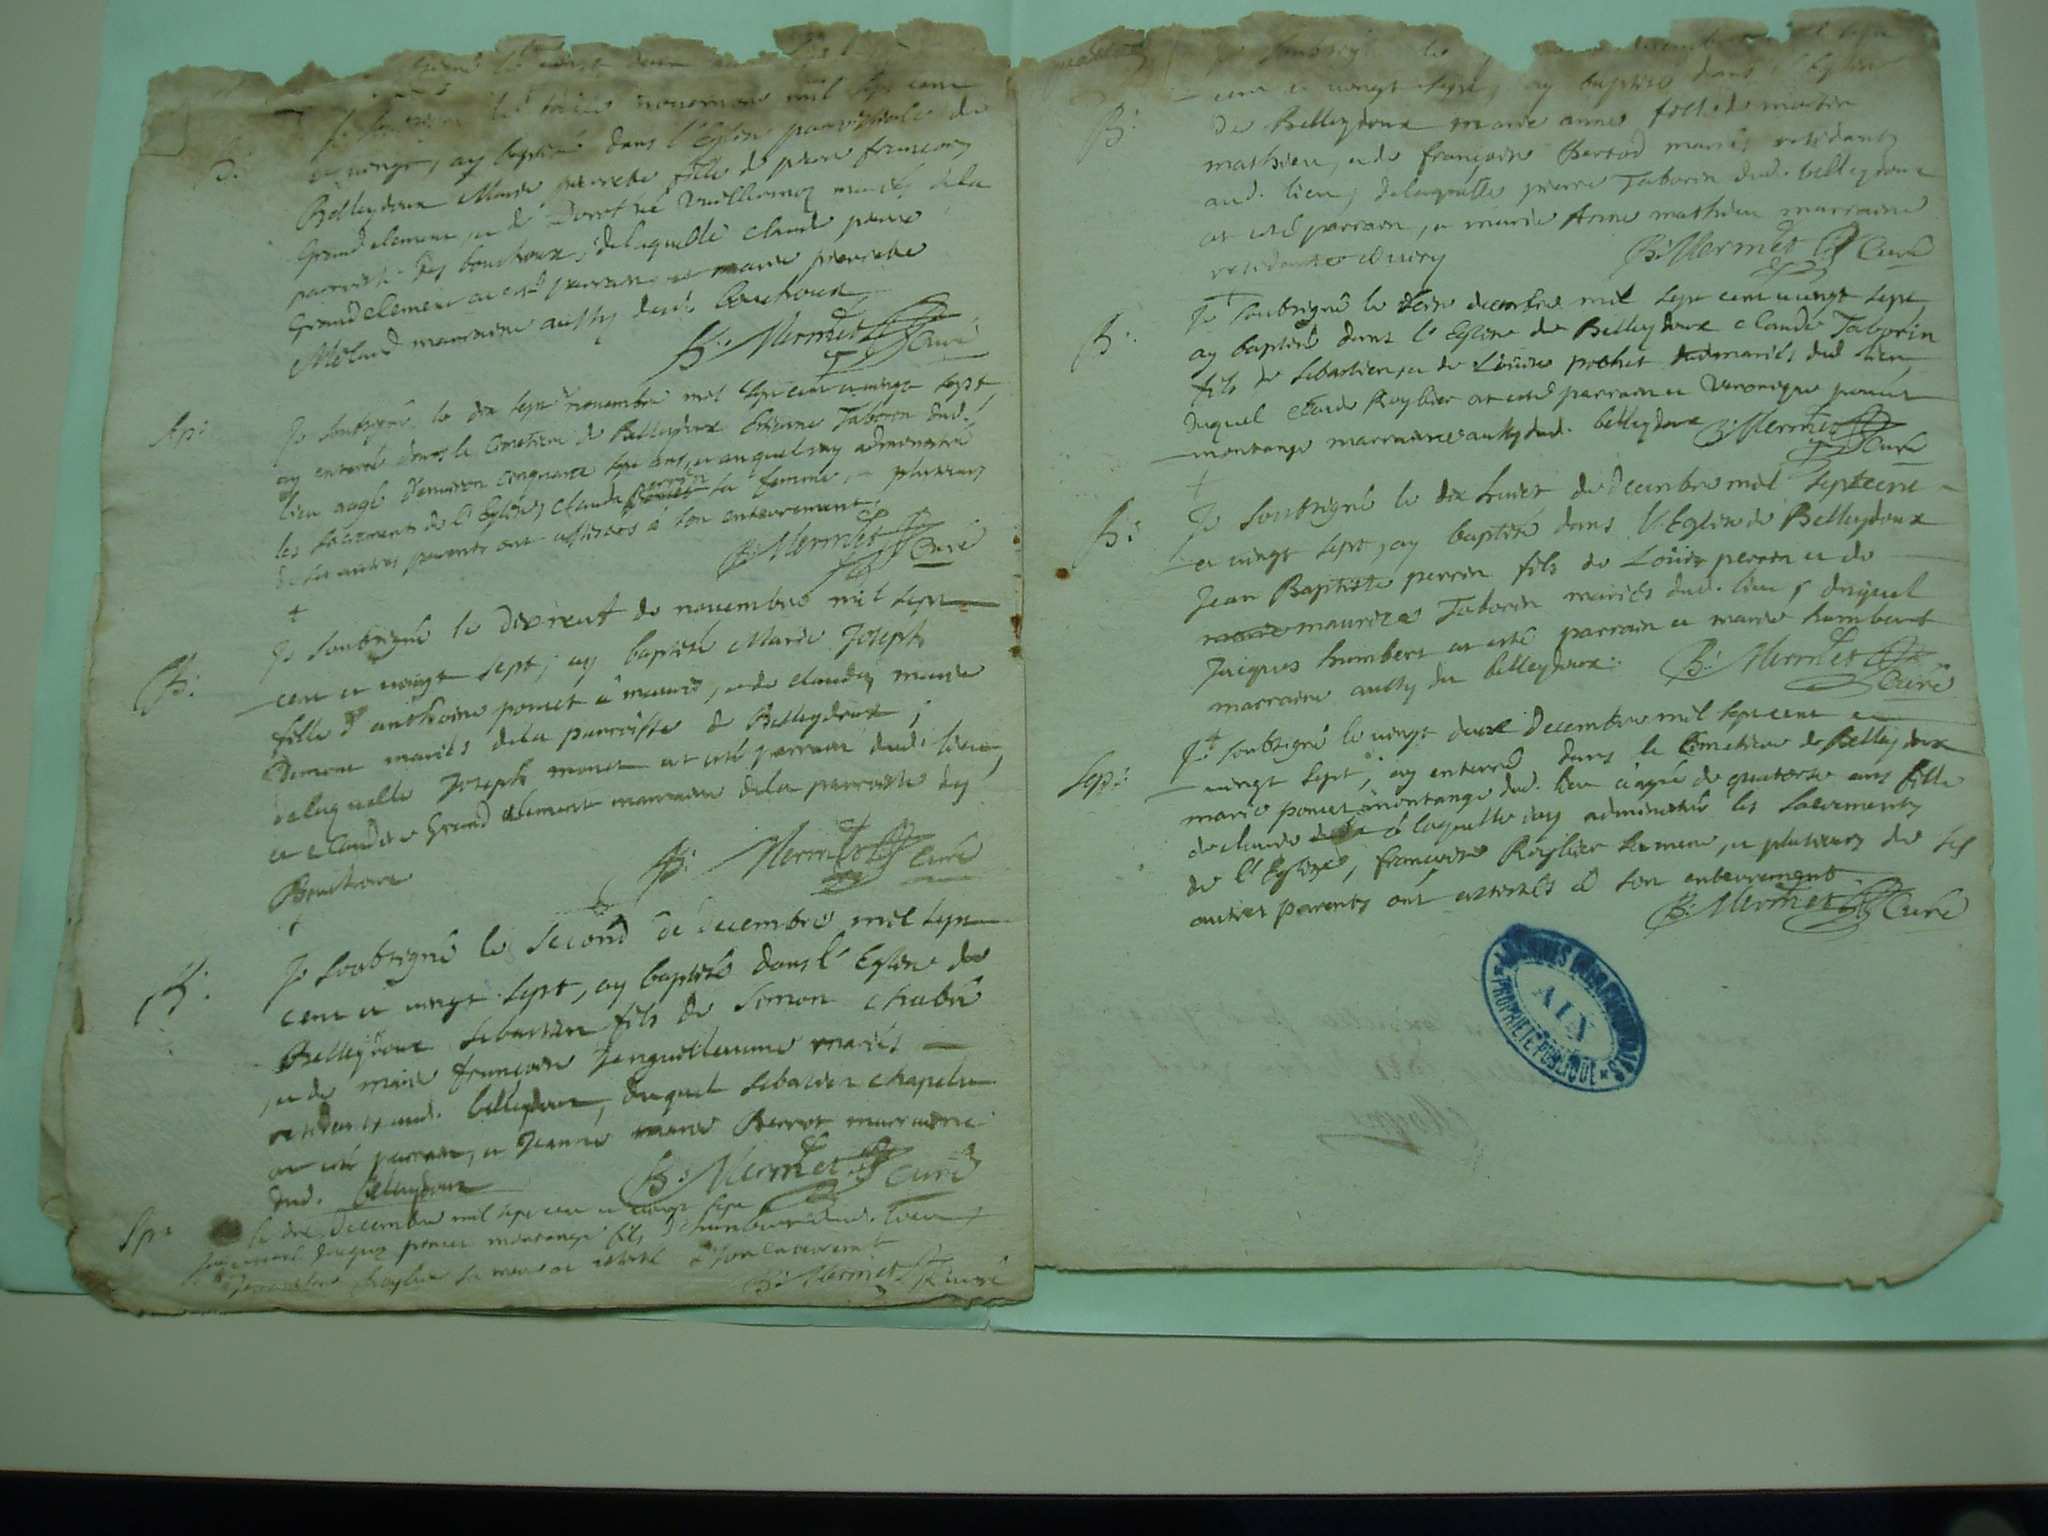 B:
et vingt, ay baptisé dans l'Eglise parroissiale de
Belleydoux Marie pierrette fille de pierre françois
Grandclement, et de Dorothé Vuillermoz mariés dela
parroisse des bouchoux, delaquelle claude pierre
Grandclement a esté parrain et marie pierrette
marraine aussy dud. bouchoux
B: Mermet Curé
Sep:
Je soubsigné le dix sept novembre mil sept cent et vingt sept,
ay enterré dans le Cimetiere de Belleydoux Estienne Taborin dud.
lieu aagé d'environ cinquante sept ans, auquel j'ay administré
les sacrements de l'Eglise, Clauda perrin sa femme, et plusieurs
de ses autres parents ont assistes à son enterrement.
B: Mermet Curé
B:
Je soubsigné le dixneuf de novembre mil sept
cent et vingt sept, ay baptisé Marie Joseph
fille d'anthoine poncet à mauris, et de claudaz marie
mariés dela parroisse de Belleydoux,
delaquelle Joseph monet at esté parrain dud. lieu,
et claudine Grand clement marraine dela parroisse des
Bouchoux
B: Mermet Curé
B:
Je soubsigné le second de decembre mil sept
cent et vingt sept, ay baptisé dans l'Eglise de
Belleydoux Sebastien fils de Simon chabü
et de marie françoise Janguillaume mariés
residents aud. belleydoux, duquel sebastien chapelu
at esté parrain, et Jeanne marie Perrot marraine
dud. belleydoux
B: Mermet Curé
Sep:
le dix decembre mil sept cent et vingt sept
Jaques poncet montange fils d'humbert dud. lieu
Roybier sa mere at assisté à son enterrement
B: Mermet Curé
Je soubsigné le
B:
cent et vingt sept, ay baptisé dans l'Eglise
de Belleydoux marie anne fille de martin
mathieu, et de françoise Bertod mariés residants
aud. lieu, delaquelle pierre Taborin dud. belleydoux
at esté parrain, et marie Anne mathieu marraine
residente
B: Mermet Curé
B:
Je soubsigné le decembre mil sept cent et vingt sept
ay baptisé dans l'Eglise de Belleydoux claude Taborin
fils de sebastien, et de Loüise prohet mariés dud. lieu,
duquel claude Roybier at esté parrain et Veronique poncet
montange marraine aussy dud. belleydoux B: Mermet
Curé
B:
Je soubsigné le dix huict de decembre mil sept cent
et vingt sept, ay baptisé dans l'Eglise de Belleydoux
Jean Baptiste perrin fils de Loüis perrin et de
maurize Taborin mariés dud. lieu, duquel
Jacques humbert at esté parrain et marie humbert
marraine aussy du belleydoux. B: Mermet
Curé
Sep:
Je soubsigné le vingt deux decembre mil sept cent et
vingt sept, ay enterré dans le Cimetiere de Belleydoux
marie poncet montange dud. lieu aagée de quatorse ans fille
de claude à laquelle j'ay administré les sacrements
de l'Eglise, françoise Roybier sa mere, et plusieurs de ses
autres parents ont assistés à son enterrement
B: Mermet Curé
ARCHIVES DÉPARTEMENTALES
AIN
PROPRIÉTÉ PUBLIQUE